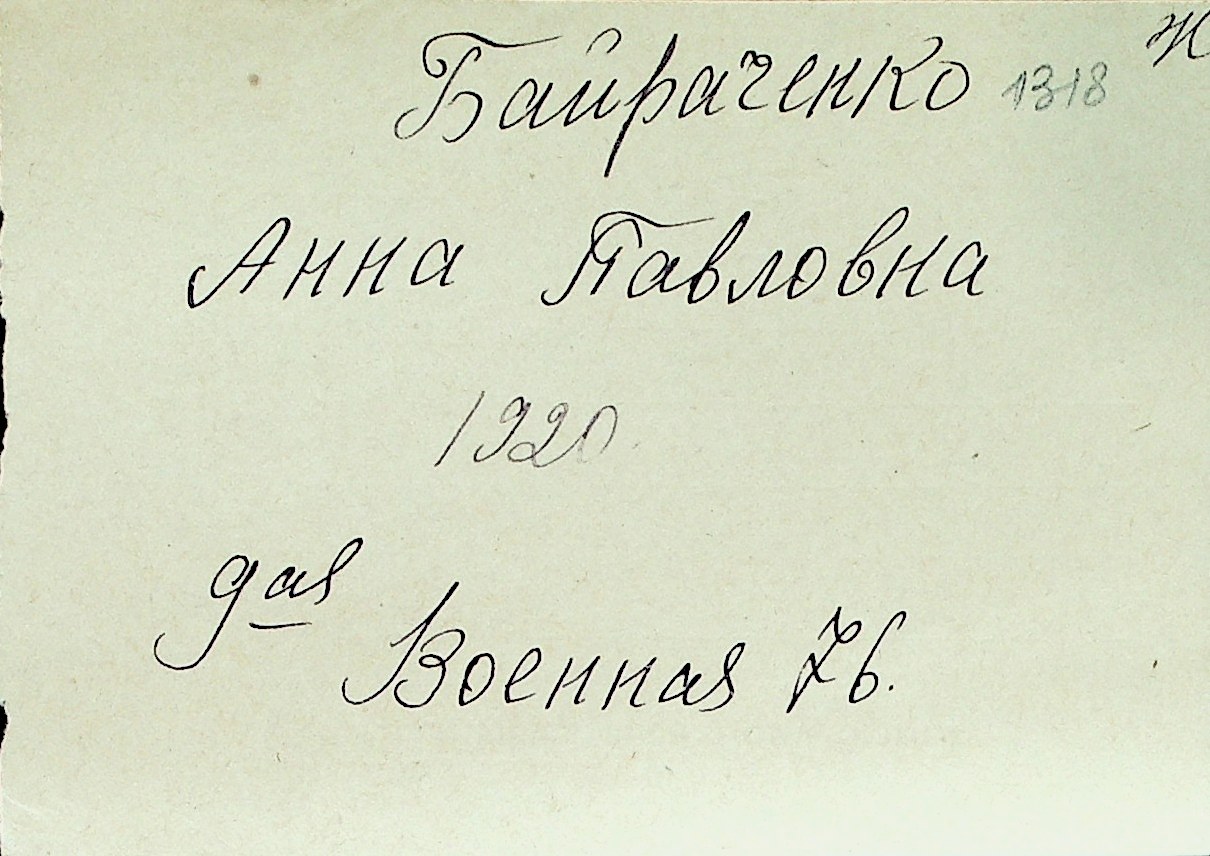 Байраченко 1318 Ж
Анна Павловна
1920
9ая
Военная 76.